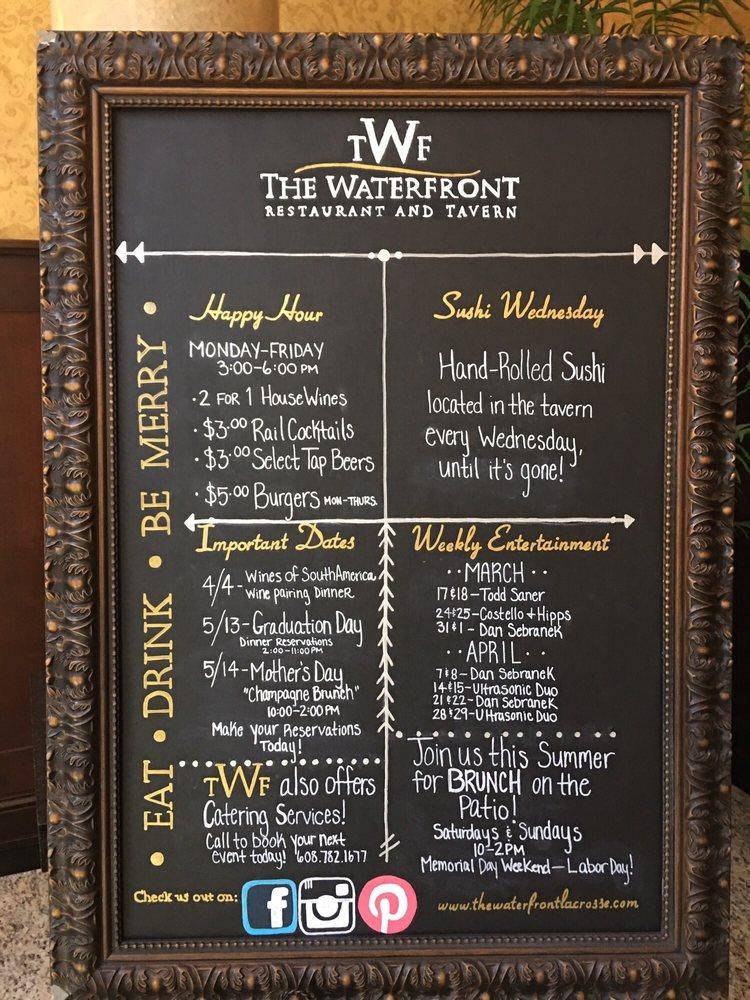 TWF
THE WATERFRONT
RESTAURANT AND TAVERN
• EAT • DRINK • BE MERRY •
Happy Hour
MONDAY-FRIDAY
3:00-6:00 PM
• 2 FOR 1 House Wines
• $3.00 Rail Cocktails
• $3.00 Select Tap Beers
• $5.00 Burgers MON-THURS.
Sushi Wednesday
Hand-Rolled Sushi
located in the tavern
every Wednesday,
until it's gone!
Important Dates
4/4 - Wines of South America
Wine pairing Dinner
5/13 - Graduation Day
Dinner Reservations
2:00-11:00 PM
5/14 - Mother's Day
"Champagne Brunch"
10:00-2:00 PM
Make your Reservations
Today!
Weekly Entertainment
•• MARCH ••
17 & 18 - Todd Saner
24 & 25 - Costello + Hipps
31 & 1 - Dan Sebranek
•• APRIL ••
7 & 8 - Dan Sebranek
14 & 15 - Ultrasonic Duo
21 & 22 - Dan Sebranek
28 & 29 - Ultrasonic Duo
TWF also offers
Catering Services!
Call to book your next
event today! 608.782.1677
Join us this Summer
for BRUNCH on the
Patio!
Saturdays & Sundays
10-2PM
Memorial Day Weekend - Labor Day!
Check us out on:
f
www.thewaterfrontlacrosse.com